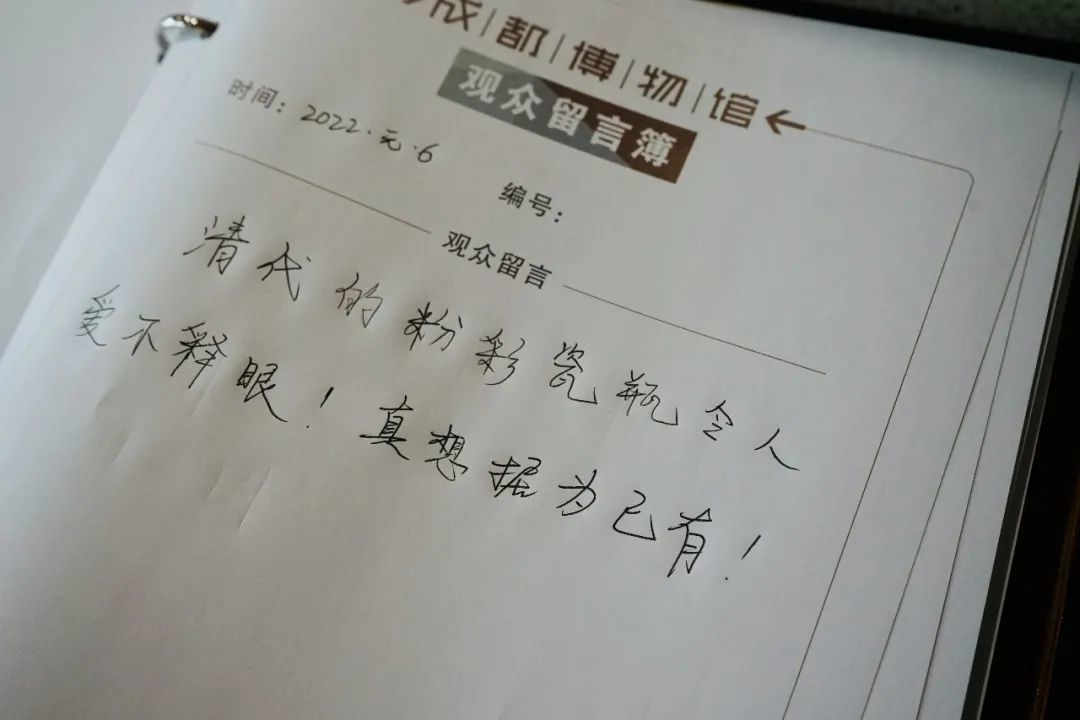 成|都|博|物|馆
观众留言簿
时间：2022.元.6
编号：
观众留言
清代的粉彩瓷瓶令人
爱不释眼！真想据为已有！